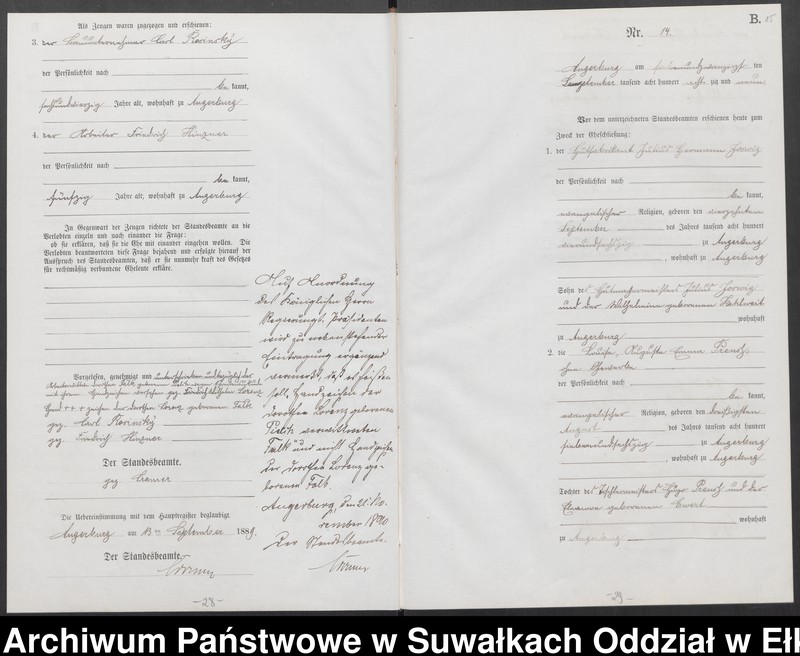 Als Zeugen waren zugezogen und erschienen:
3. der Bauunternehmer Carl Rosinsky
der Persönlichkeit nach
be kannt,
sechsundvierzig Jahre alt, wohnhaft zu Angerburg
4. der Arbeiter Friedrich Hinzner
der Persönlichkeit nach
be kannt,
fünfzig Jahre alt, wohnhaft zu Angerburg
In Gegenwart der Zeugen richtete der Standesbeamte an die
Verlobten einzeln und nach einander die Frage:
ob sie erklären, daß sie die Ehe mit einander eingehen wollen. Die
Verlobten beantworteten diese Frage bejahend und erfolgte hierauf der
Ausspruch des Standesbeamten, daß er sie nunmehr kraft des Gesetzes
für rechtmäßig verbundene Eheleute erkläre.
Vorgelesen, genehmigt und unterschrieben
mit ihrem Handzeichen versehen gez. Lorenz
Hand +++ zeichen der Dorothea Lorenz geborenen Falk
gez. Carl Rosinsky
gez. Friedrich Hinzner
Der Standesbeamte.
gez. Cramer
Die Uebereinstimmung mit dem Hauptregister beglaubigt
Angerburg am 13ten September 1889.
Der Standesbeamte.
Cramer
Auf Anordnung
des Königlichen Herrn
Regierungs-Präsidenten
wird zu nebenstehender
Eintragung ergänzend
vermerkt, daß es heißen
soll, Handzeichen der
Dorothea Lorenz geborenen
verwittweten
Falk und nicht Handzeichen
der Dorothea Lorenz ge-
borenen Falk.
Angerburg, den 21. No-
vember 1890
Der Standesbeamte.
Cramer
-28-
B.
Nr. 14.
Angerburg am siebenundzwanzigsten
September tausend acht hundert achtzig und neun
Vor dem unterzeichneten Standesbeamten erschienen heute zum
Zweck der Eheschließung:
1. der Hutfabrikant Julius Hermann
der Persönlichkeit nach
be kannt,
evangelischer Religion, geboren den vierzehnten
September des Jahres tausend acht hundert
vierundsechszig zu Angerburg
, wohnhaft zu Angerburg
Sohn des Hutmachermeisters Julius
und der Wilhelmine geborenen
wohnhaft
zu Angerburg
2. die Louise, Auguste Emma
der Persönlichkeit nach
be kannt,
evangelischer Religion, geboren den dreißigsten
August des Jahres tausend acht hundert
siebenundsechszig zu Angerburg
, wohnhaft zu Angerburg
Tochter des Tischlermeisters und der
geborenen Ewert
wohnhaft
zu Angerburg
-29-
Archiwum Państwowe w Suwałkach Oddział w Ełk